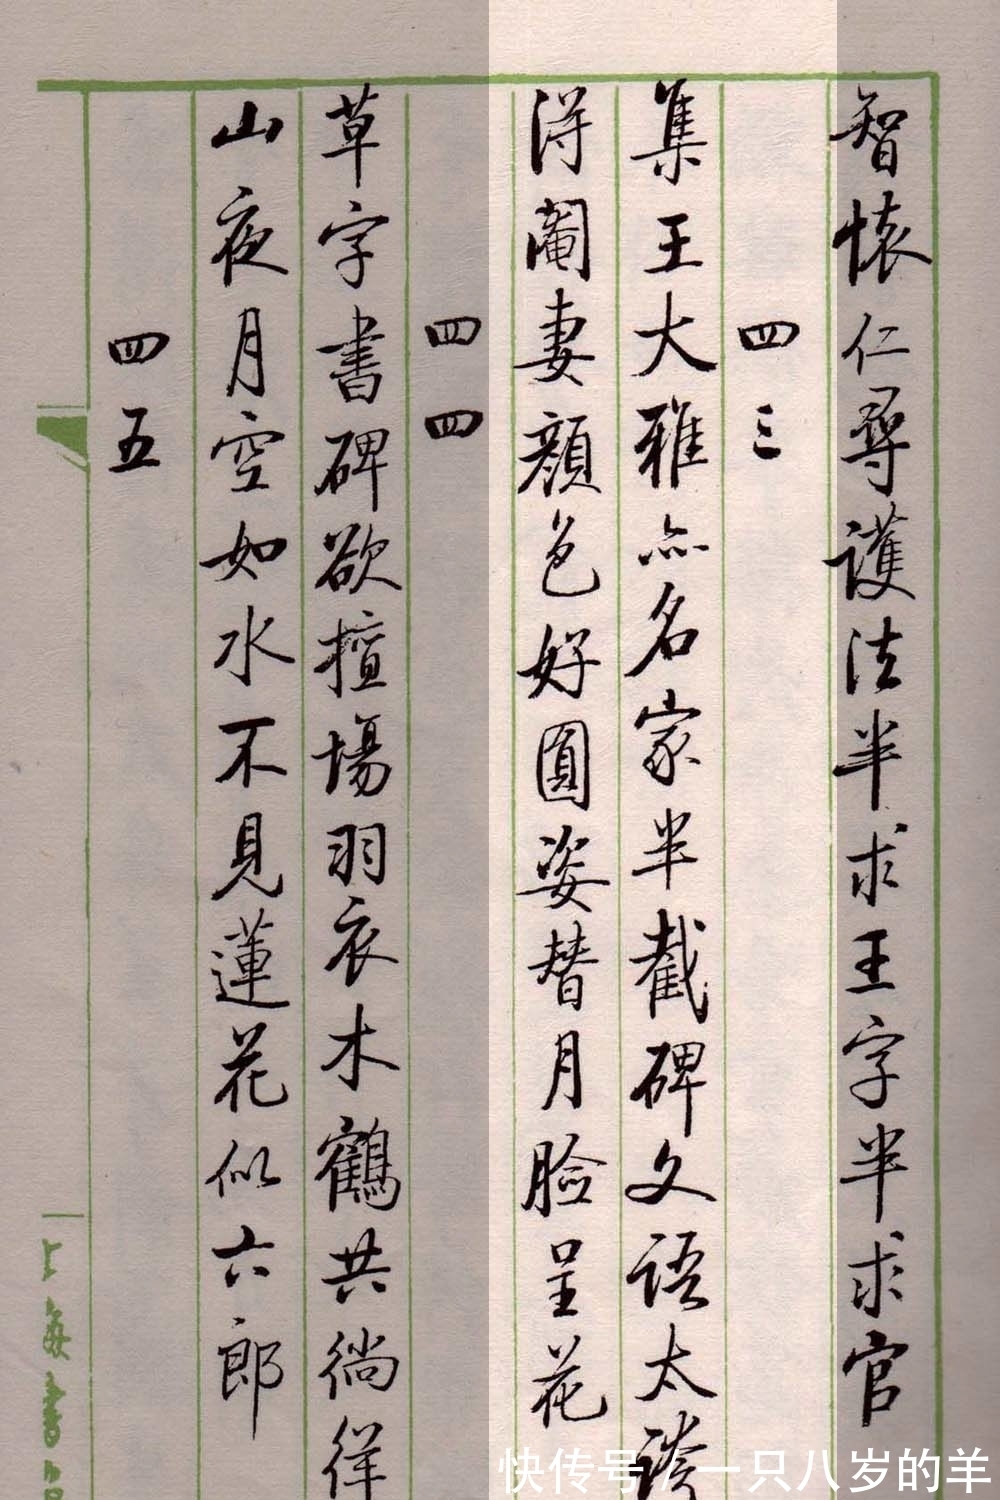 智懷仁尋護法半求王字半求官
四三
集王大雅亦名家半截碑文語太誇
得閹妻顏色好圓姿替月臉呈花
四四
草字書碑欲擅場羽衣木鶴共徜徉
山夜月空如水不見蓮花似六郎
四五
上海書
快传号/一只八岁的羊